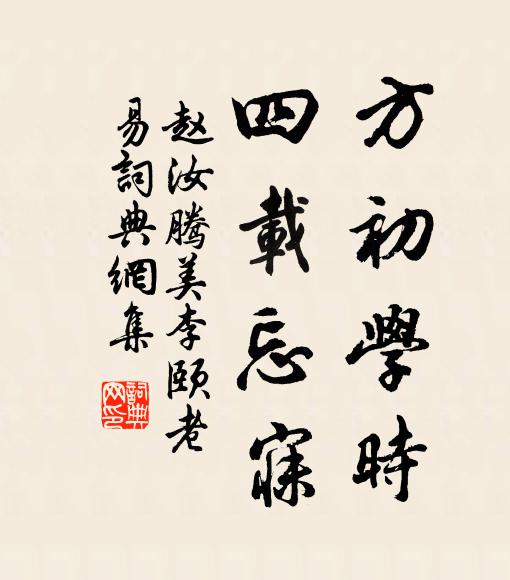 方初學時
四載忘寐
赵汝腾美李颐老
易詞典網集
詞典
网印